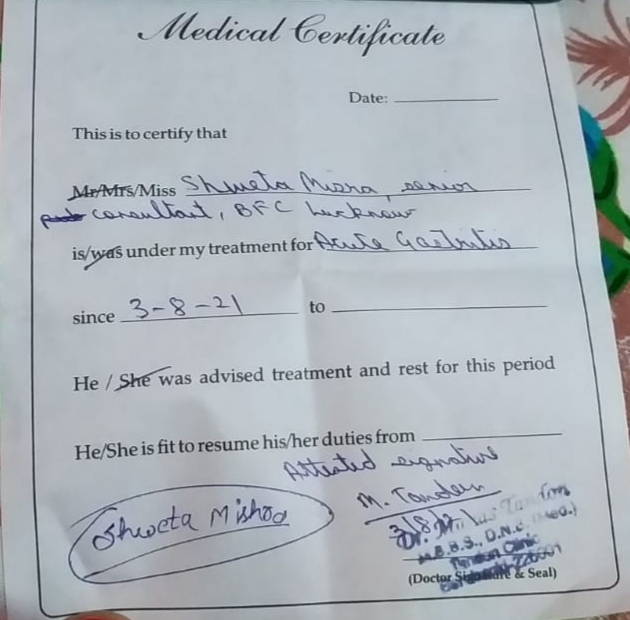 Medical Certificate
Date:
This is to certify that
Mr/Mrs/Miss Shweta Misra, senior
consultant, BFC Lucknow
is/was under my treatment for Acute Gastritis
since 3-8-21 to
He / She was advised treatment and rest for this period
He/She is fit to resume his/her duties from
Attested signature
Shweta Mishra
M. Tanden
3/8/21
Dr.
M.B.B.S., D.N.C.
Clinic
(Doctor Signature & Seal)